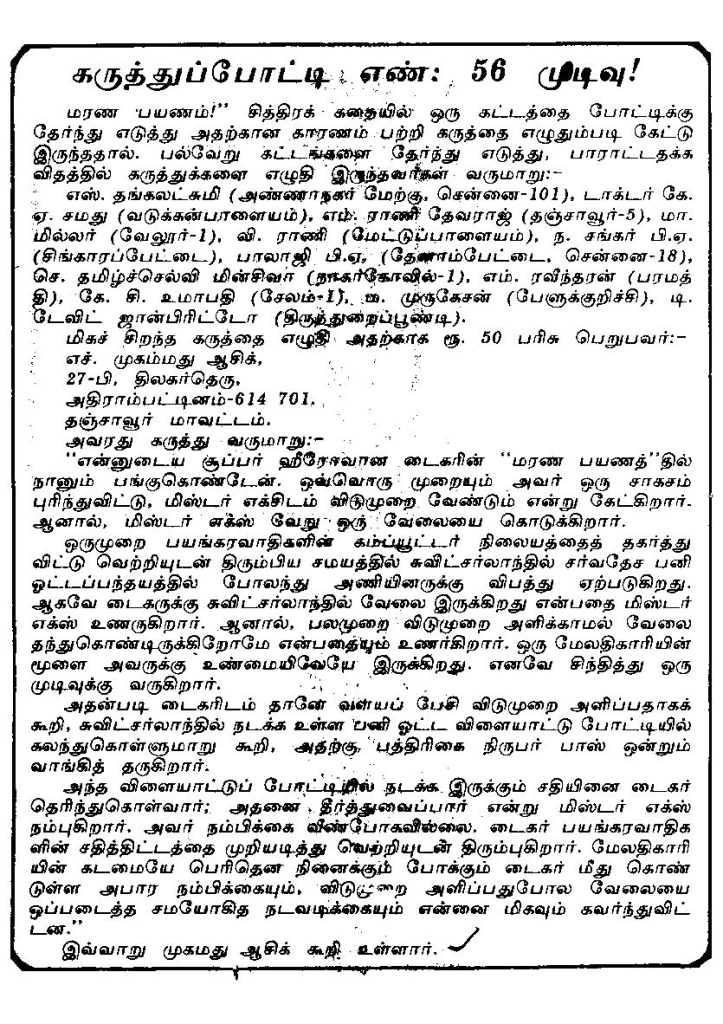 கருத்துப்போட்டி எண்: 56 முடிவு!
மரண பயணம்!" சித்திரக் கதையில் ஒரு கட்டத்தை போட்டிக்கு
தேர்ந்து எடுத்து அதற்கான காரணம் பற்றி கருத்தை எழுதும்படி கேட்டு
இருந்ததால். பல்வேறு கட்டங்களை தேர்ந்து எடுத்து, பாராட்டதக்க
விதத்தில் கருத்துக்களை எழுதி இருந்தவர்கள் வருமாறு:-
எஸ். தங்கலட்சுமி (அண்ணாநகர் மேற்கு, சென்னை-101), டாக்டர் கே.
ஏ. சமது (வடுக்கன்பாளையம்), எம். ராணி தேவராஜ் (தஞ்சாவூர்-5), மா.
மில்லர் (வேலூர்-1), வி. ராணி (மேட்டுப்பாளையம்), ந. சங்கர் பி.ஏ.
(சிங்காரப்பேட்டை), பாலாஜி பி.ஏ, (தேனாம்பேட்டை, சென்னை-18),
செ. தமிழ்ச்செல்வி மின்சிவா (நாகர்கோவில்-1), எம். ரவீந்தரன் (பரமத்
தி), கே. சி. உமாபதி (சேலம்-1), முருகேசன் (பேளுக்குறிச்சி), டி.
டேவிட் ஜான்பிரிட்டோ (திருத்துறைப்பூண்டி).
மிகச் சிறந்த கருத்தை எழுதி அதற்காக ரூ. 50 பரிசு பெறுபவர்:-
எச். முகம்மது ஆசிக்,
27-பி, திலகர்தெரு,
அதிராம்பட்டினம்-614 701,
தஞ்சாவூர் மாவட்டம்.
அவரது கருத்து வருமாறு:-
"என்னுடைய சூப்பர் ஹீரோவான டைகரின் "மரண பயணத்"தில்
நானும் பங்குகொண்டேன். ஒவ்வொரு முறையும் அவர் ஒரு சாகசம்
புரிந்துவிட்டு, மிஸ்டர் எக்சிடம் விடுமுறை வேண்டும் என்று கேட்கிறார்.
ஆனால், மிஸ்டர் எக்ஸ் வேறு ஒரு வேலையை கொடுக்கிறார்.
ஒருமுறை பயங்கரவாதிகளின் கம்ப்யூட்டர் நிலையத்தைத் தகர்த்து
விட்டு வெற்றியுடன் திரும்பிய சமயத்தில் சுவிட்சர்லாந்தில் சர்வதேச பனி
ஓட்டப்பந்தயத்தில் போலந்து அணியினருக்கு விபத்து ஏற்படுகிறது.
ஆகவே டைகருக்கு சுவிட்சர்லாந்தில் வேலை இருக்கிறது என்பதை மிஸ்டர்
எக்ஸ் உணருகிறார். ஆனால், பலமுறை விடுமுறை அளிக்காமல் வேலை
தந்துகொண்டிருக்கிறோமே என்பதையும் உணர்கிறார். ஒரு மேலதிகாரியின்
மூளை அவருக்கு உண்மையிலேயே இருக்கிறது. எனவே சிந்தித்து ஒரு
முடிவுக்கு வருகிறார்.
அதன்படி டைகரிடம் தானே வலியப் பேசி விடுமுறை அளிப்பதாகக்
கூறி, சுவிட்சர்லாந்தில் நடக்க உள்ள பனி ஓட்ட விளையாட்டு போட்டியில்
கலந்துகொள்ளுமாறு கூறி, அதற்கு பத்திரிகை நிருபர் பாஸ் ஒன்றும்
வாங்கித் தருகிறார்.
அந்த விளையாட்டுப் போட்டியில் நடக்க இருக்கும் சதியினை டைகர்
தெரிந்துகொள்வார்; அதனை தீர்த்துவைப்பார் என்று மிஸ்டர் எக்ஸ்
நம்புகிறார். அவர் நம்பிக்கை வீண்போகவில்லை. டைகர் பயங்கரவாதிக
ளின் சதித்திட்டத்தை முறியடித்து வெற்றியுடன் திரும்புகிறார். மேலதிகாரி
யின் கடமையே பெரிதென நினைக்கும் போக்கும் டைகர் மீது கொண்
டுள்ள அபார நம்பிக்கையும், விடுமுறை அளிப்பதுபோல வேலையை
ஒப்படைத்த சமயோகித நடவடிக்கையும் என்னை மிகவும் கவர்ந்துவிட்
டன."
இவ்வாறு முகமது ஆசிக் கூறி உள்ளார்.